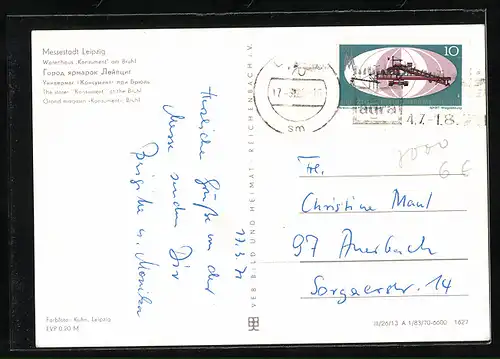 Messestadt Leipzig
Warenhaus „Konsument“ am Brühl
Город ярмарок Лейпциг
Универмаг «Консумент» при Брюле
The store "Konsument" at the Brühl
Grand magasin «Konsument», Brühl
Herzliche Grüße von der
Messe senden Dir
Brigitte u. Monika
17.3.71
VEB BILD UND HEIMAT REICHENBACH i.V.
10
17.
sm
4.7.-1.8.
7000
6 €
Frl.
Christine Maul
97 Auerbach
Sorgaerstr. 14
Farbfoto: Kuhn, Leipzig
EVP 0,20 M
III/26/13 A 1/83/70-6600 1627